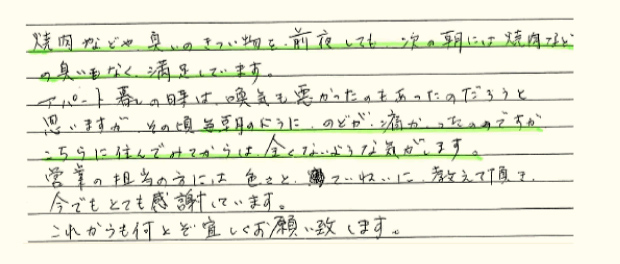 焼肉などや、臭いのきつい物を、前夜しても、次の朝には焼肉など
の臭いもなく、満足しています。
アパート暮しの時は、喚気も悪かったのもあったのだろうと
思いますが、その頃毎朝のように、のどが、痛かったのですが
こちらに住んでみてからは、全くないような気がします。
営業の担当の方には、色々と、ていねいに、教えて頂き、
今でもとても感謝しています。
これからも何とぞ宜しくお願い致します。